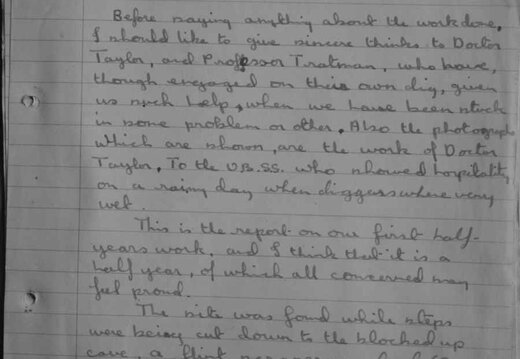 Before saying anything about the work done,
I should like to give sincere thinks to Doctor
Taylor, and Professor Tratman, who have,
though engaged on their own dig, given
us much help, when we have been stuck
in some problem or other. Also the photographs
which are shown, are the work of Doctor
Taylor. To the U.B.SS. who showed hospitality
on a rainy day when diggers where very
wet.
This is the report on our first half-
years work, and I think that it is a
half year, of which all concerned may
feel proud.
The site was found while steps
were being cut down to the blocked up
cave, a flint